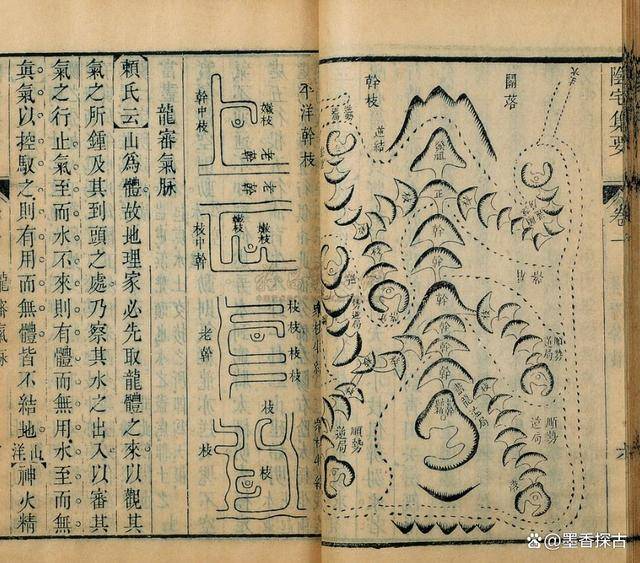 陰宅集要
卷一
六
水
闢落
幹枝
祖
幹
幹
幹
幹
幹
順勢
造局
順勢
造局
順勢
造局
平洋幹枝
嫩枝
幹中枝
老幹
老幹
嫩枝
嫩枝
枝中幹
枝
枝
枝
枝
老幹
枝
枝
枝
龍審氣脉
賴氏云山為體故地理家必先取龍體之來以觀其
氣之所鍾及其到頭之處乃察其水之出入以審其
氣之行止氣至而水不來則有體而無用水至而無
真氣以控馭之則有用而無體皆不結地山洋神火精
龍審氣脉
@墨香探古